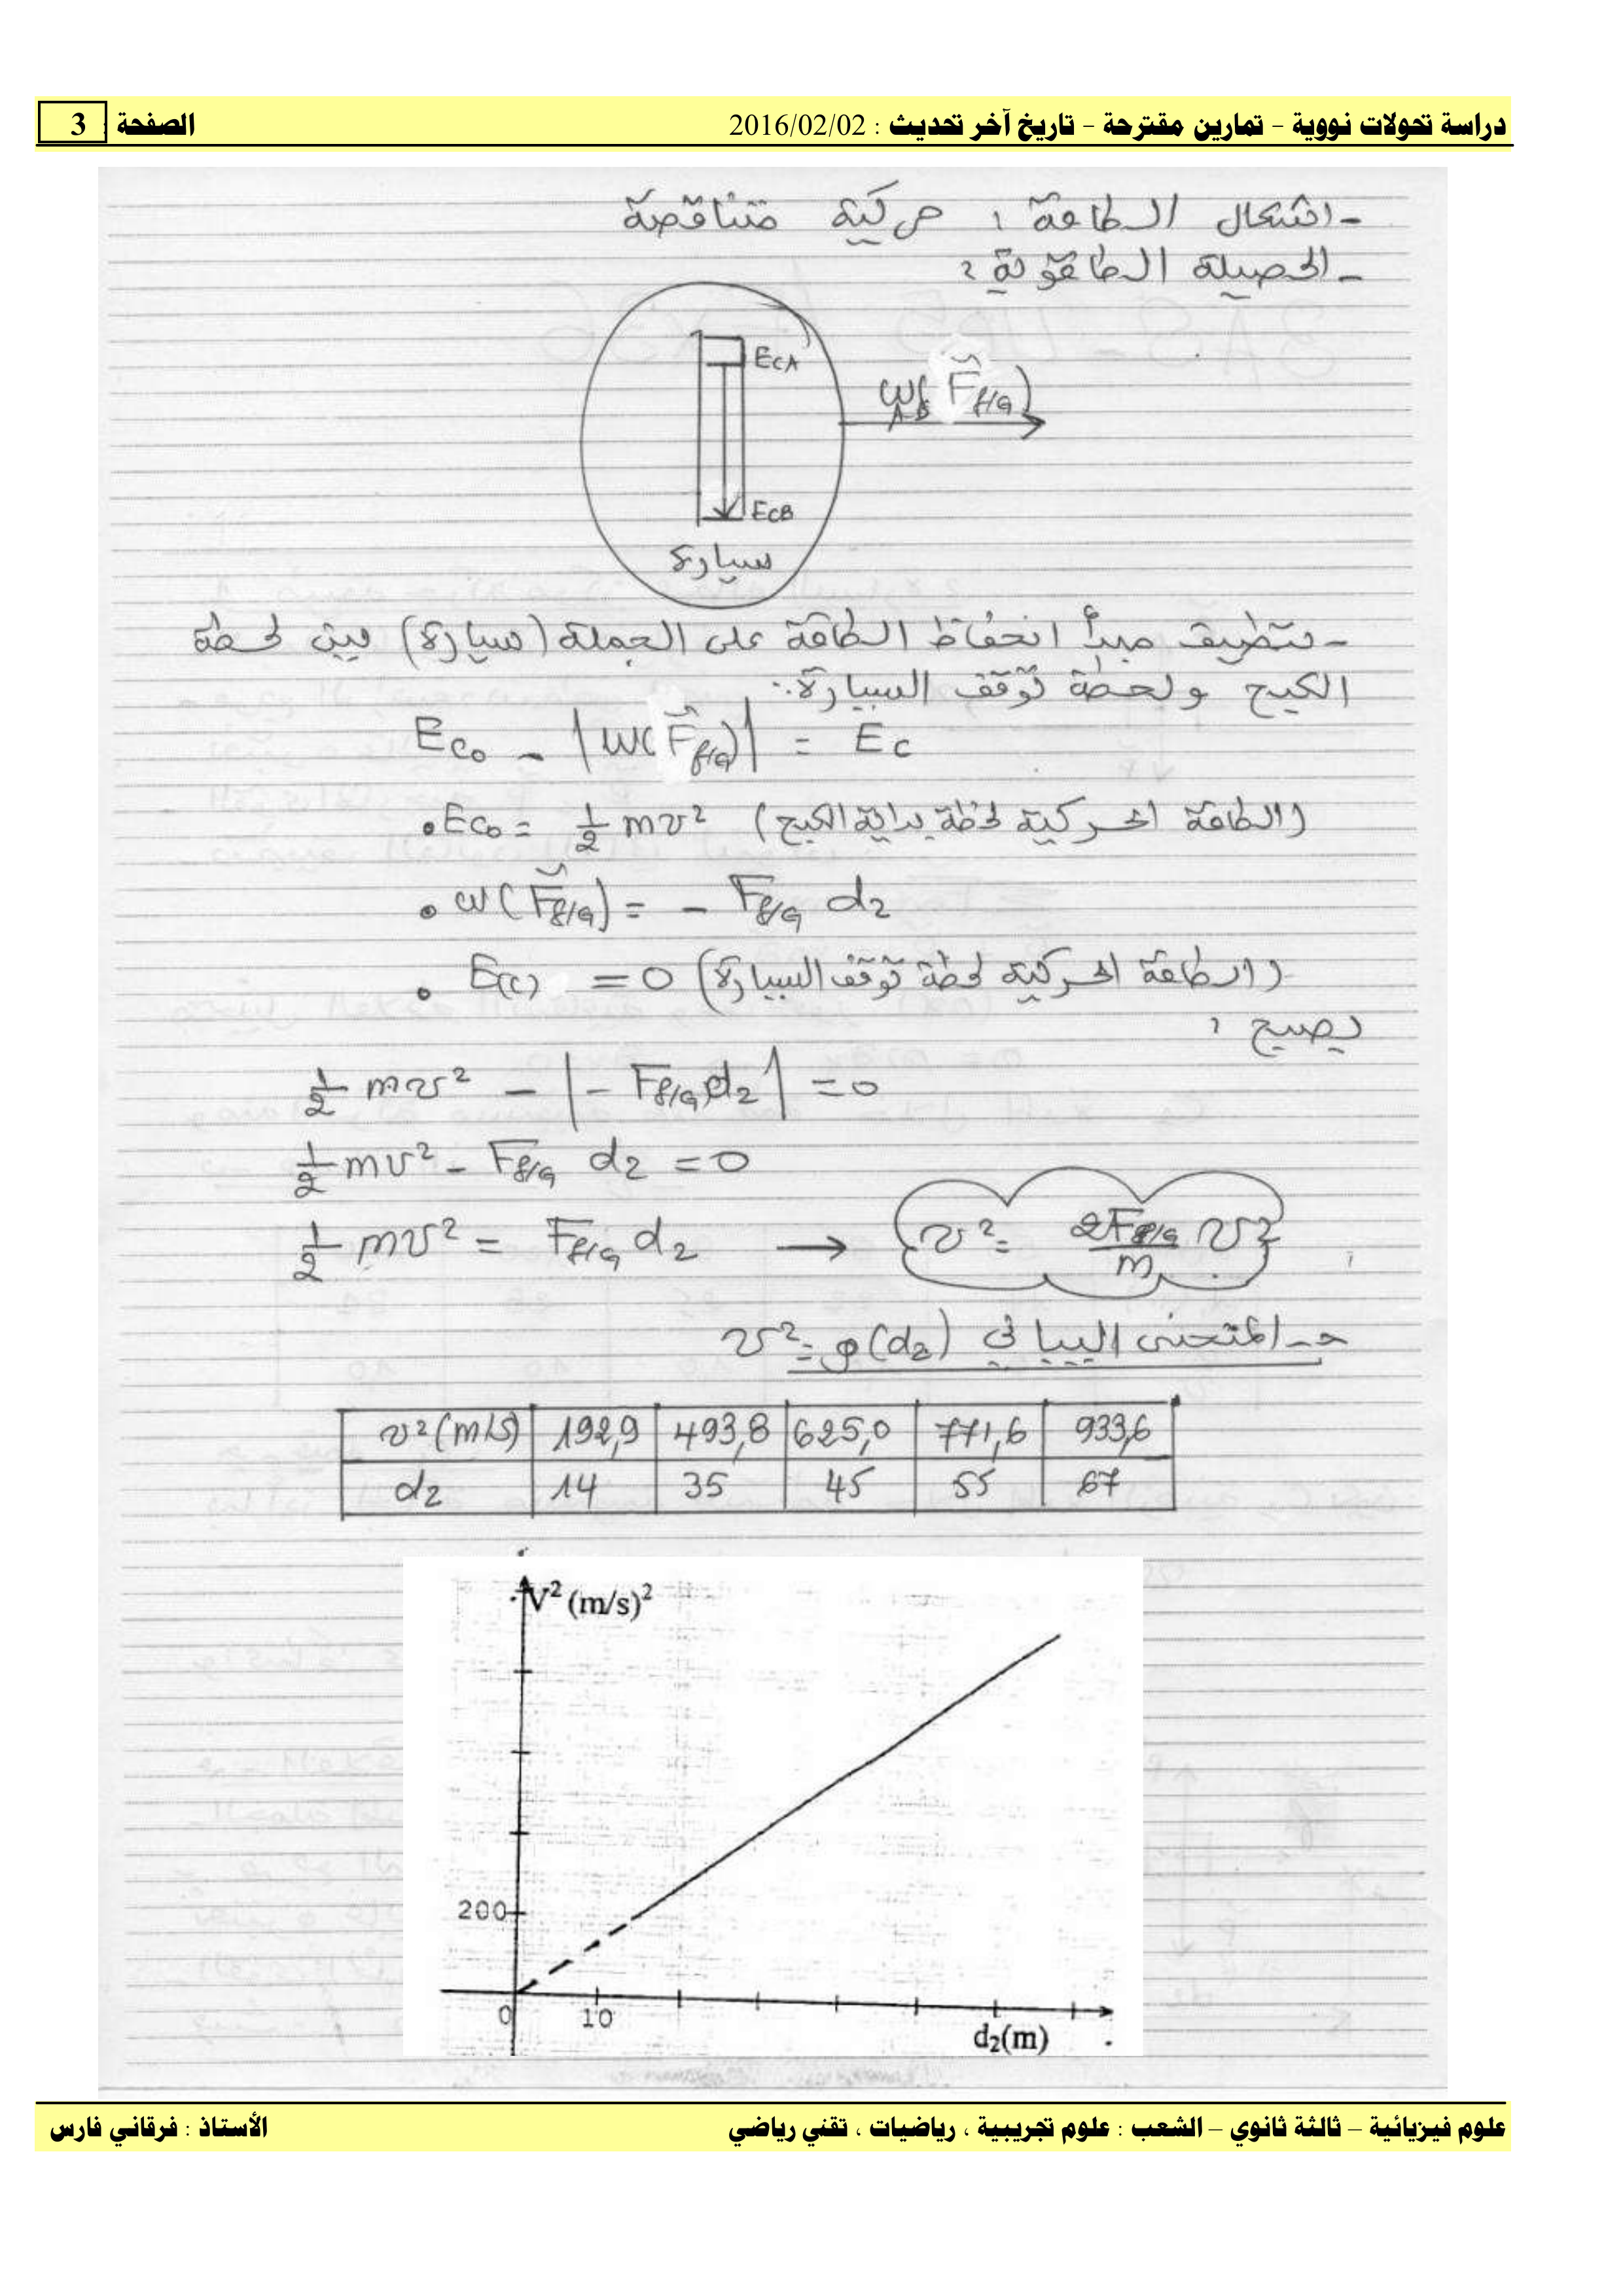 دراسة تحولات نووية – تمارين مقترحة – تاريخ آخر تحديث : 2016/02/02
الصفحة : 3
- اشكال الطاقة : حركية متناقصة
- الحصيلة الطاقوية :
EcA
W A-B (F f/q)
EcB
سيارة
- بتطبيق مبدأ انحفاظ الطاقة على الجملة (سيارة) بين لحظة
الكبح ولحظة توقف السيارة :
Ec0 - |W(F f/q)| = Ec
• Ec0 = 1/2 mv² (الطاقة الحركية لحظة بداية الكبح)
• W(F f/q) = - F f/q d2
• E(c) = 0 (الطاقة الحركية لحظة توقف السيارة)
يصبح :
1/2 mv² - |- F f/q d2| = 0
1/2 mv² - F f/q d2 = 0
1/2 mv² = F f/q d2 → v² = 2F f/q / m v²
حـ- المنحنى البياني v² = φ(d2)
v²(m/s) 192,9 493,8 625,0 771,6 933,6
d2 14 35 45 55 67
V² (m/s)²
200
0 10
d₂(m)
علوم فيزيائية – ثالثة ثانوي – الشعب : علوم تجريبية ، رياضيات ، تقني رياضي
الأستاذ : فرقاني فارس